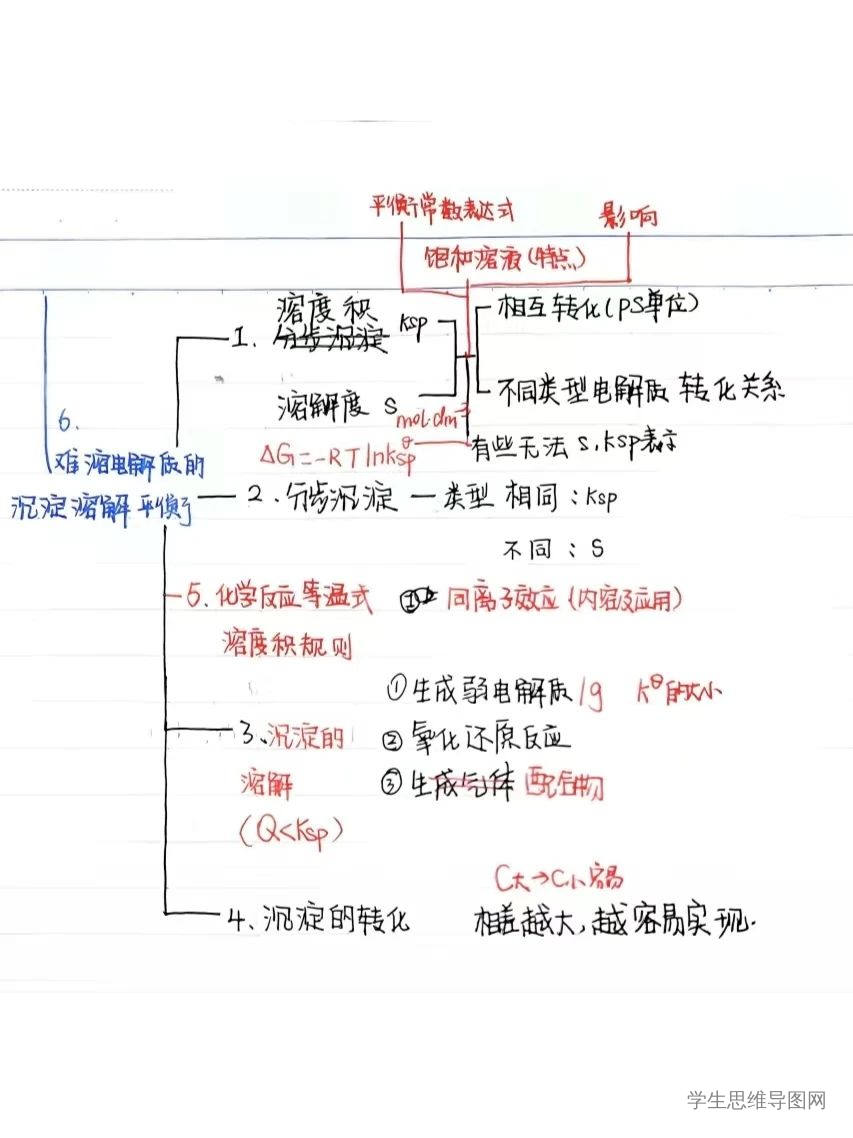 平衡常数表达式 影响
饱和溶液(特点)
溶度积 Ksp 相互转化(PS单位)
1. 分步沉淀
溶解度 S 不同类型电解质 转化关系
mol·dm⁻³
6. ΔG=-RTlnKspᶿ 有些无法 S,Ksp表示
难溶电解质的
沉淀溶解平衡 2.分步沉淀 — 类型 相同:Ksp
不同:S
5.化学反应等温式 同离子效应(内容及应用)
溶度积规则
①生成弱电解质 lg Kᶿ的大小
3、沉淀的 ②氧化还原反应
溶解 ③生成气体 配合物
(Q<Ksp)
C大→C小容易
4、沉淀的转化 相差越大,越容易实现.
学生思维导图网